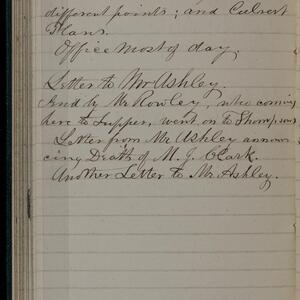 different points; and Culvert
Plans.
Office most of day.
Letter to Mr Ashley.
And by Mr Rowley, who coming
here to Supper, went on to Thompsons
Letter from Mr Ashley announ
cing Death of M. J. Clark.
Another Letter to Mr Ashley.